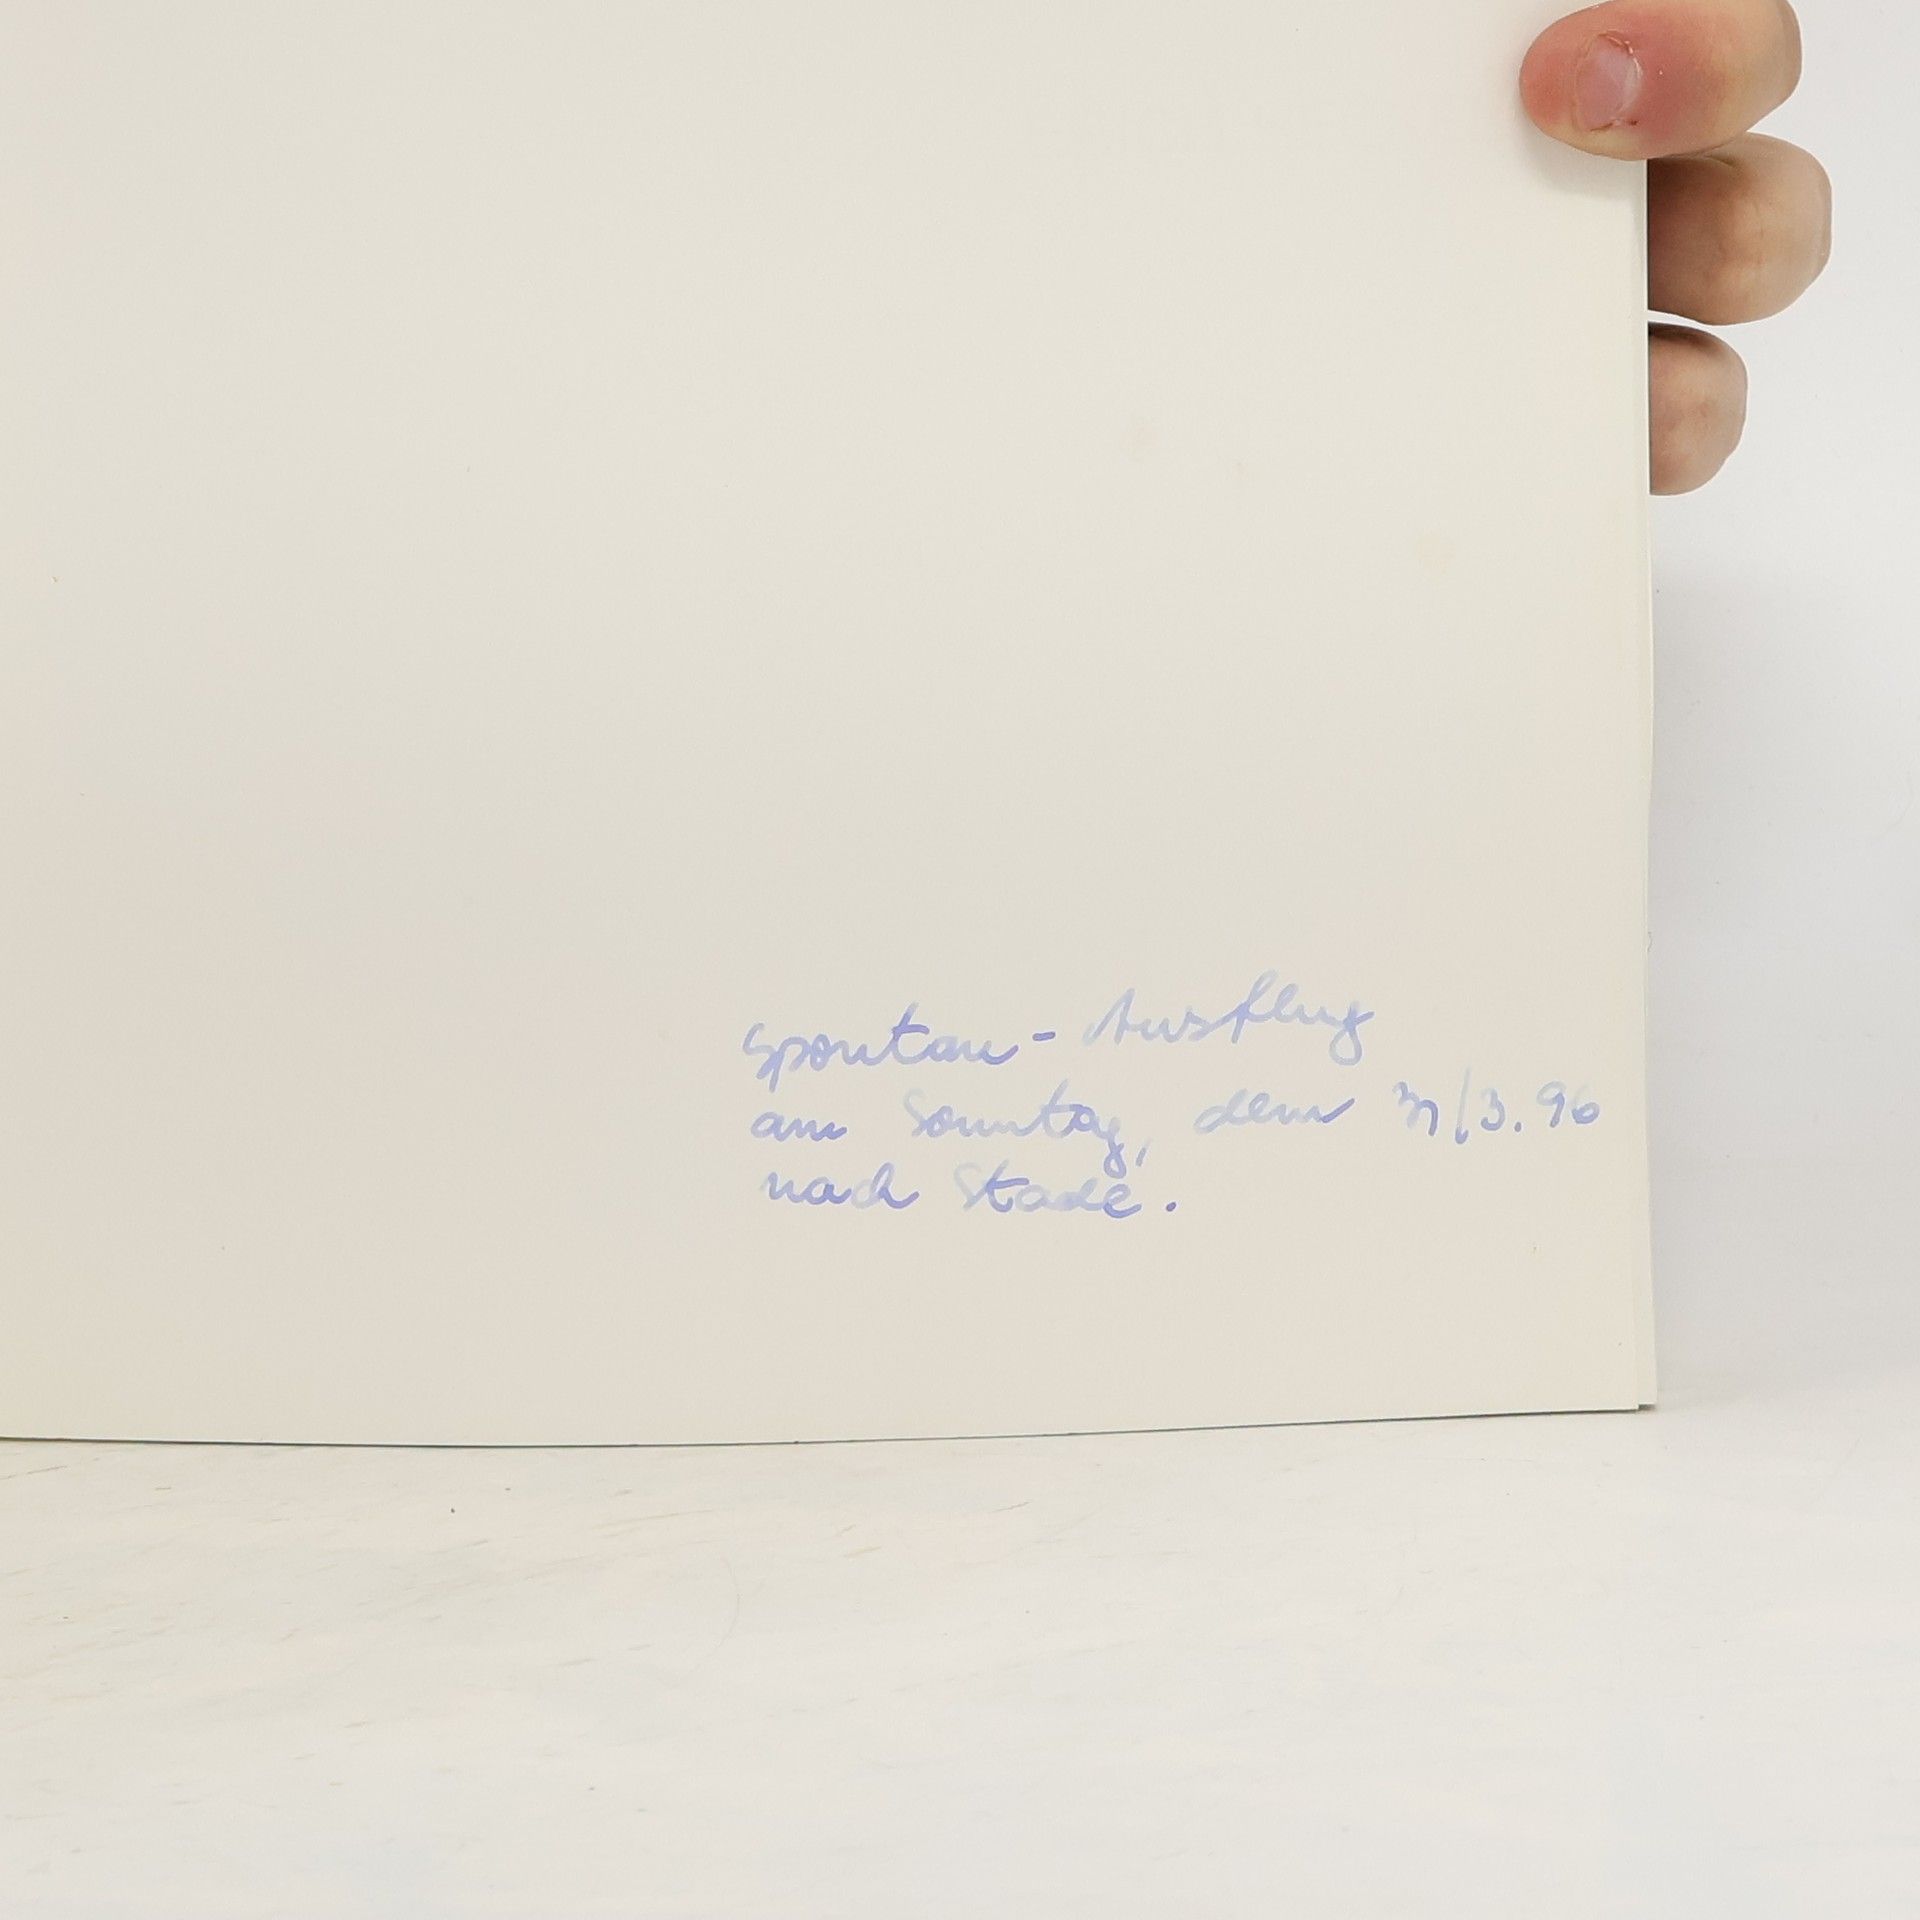 Spontan - Ausflug
am Sonntag, dem 31/3.96
nach Stade.